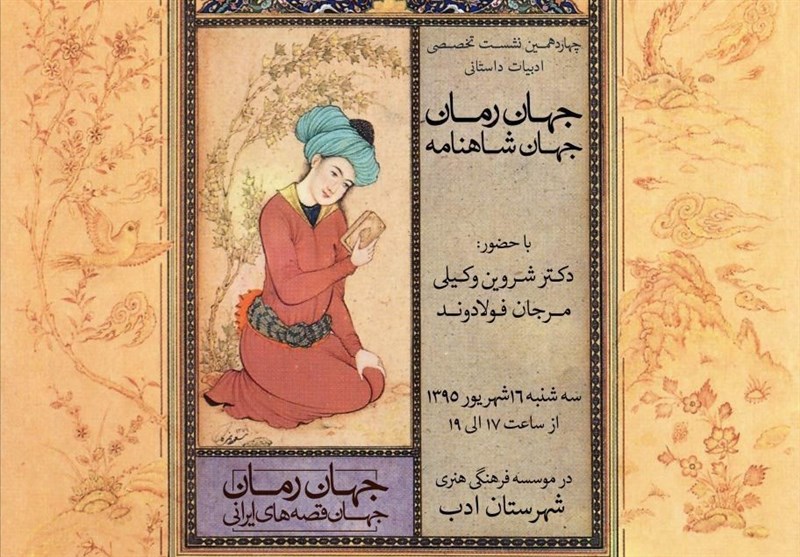 چهاردهمین نشست تخصصی
ادبیات داستانی
جهان رمان
جهان شاهنامه
با حضور:
دکتر شروین وکیلی
مرجان فولادوند
سه شنبه ۱۶ شهریور ۱۳۹۵
از ساعت ۱۷ الی ۱۹
در موسسه فرهنگی هنری
شهرستان ادب
جهان رمان
جهان قصه‌های ایرانی